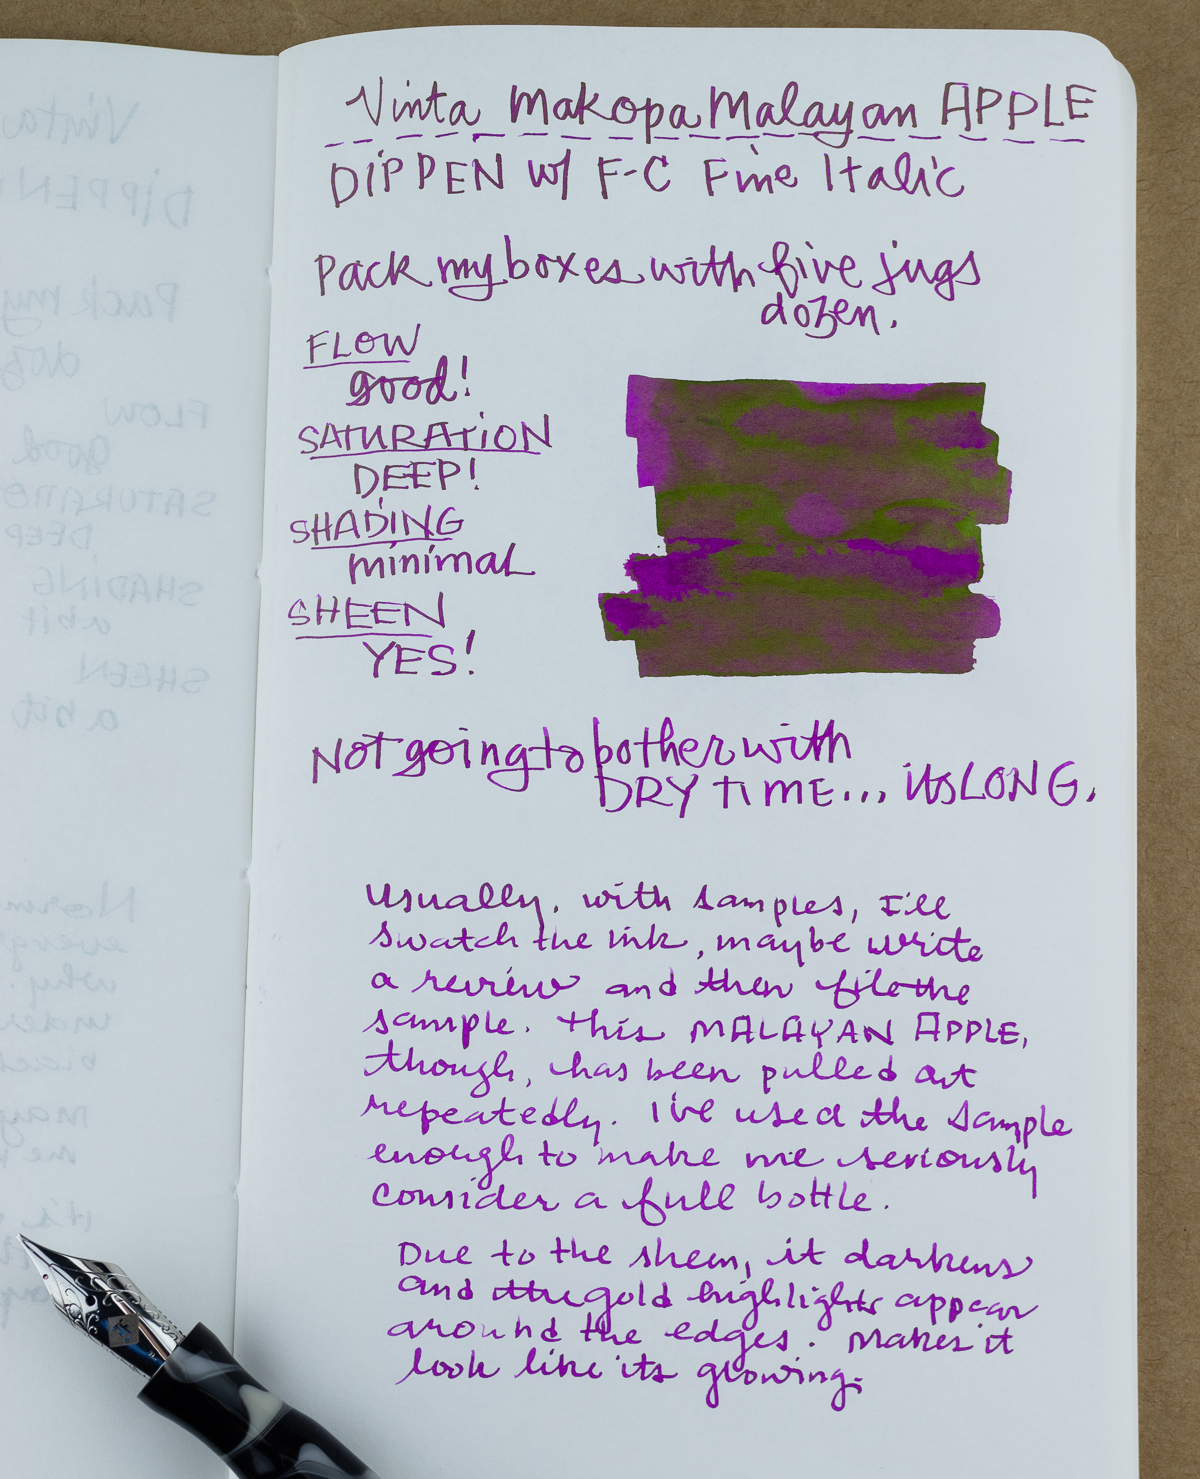 Vinta Makopa Malayan APPLE
DIPPEN w/ F-C Fine Italic
Pack my boxes with five jugs
dozen.
FLOW
good!
SATURATION
DEEP!
SHADING
minimal
SHEEN
YES!
Not going to bother with
DRY TIME... its LONG.
Usually, with samples, I'll
swatch the ink, maybe write
a review and then file the
sample. This MALAYAN APPLE,
though, has been pulled out
repeatedly. I've used the sample
enough to make me seriously
consider a full bottle.
Due to the sheen, it darkens
and the gold highlights appear
around the edges. Makes it
look like its glowing.
Vinta
DIPPEN
Pack my
doz
FLOW
good
SATURATIO
DEEP
SHADING
a bit
SHEEN
a bit